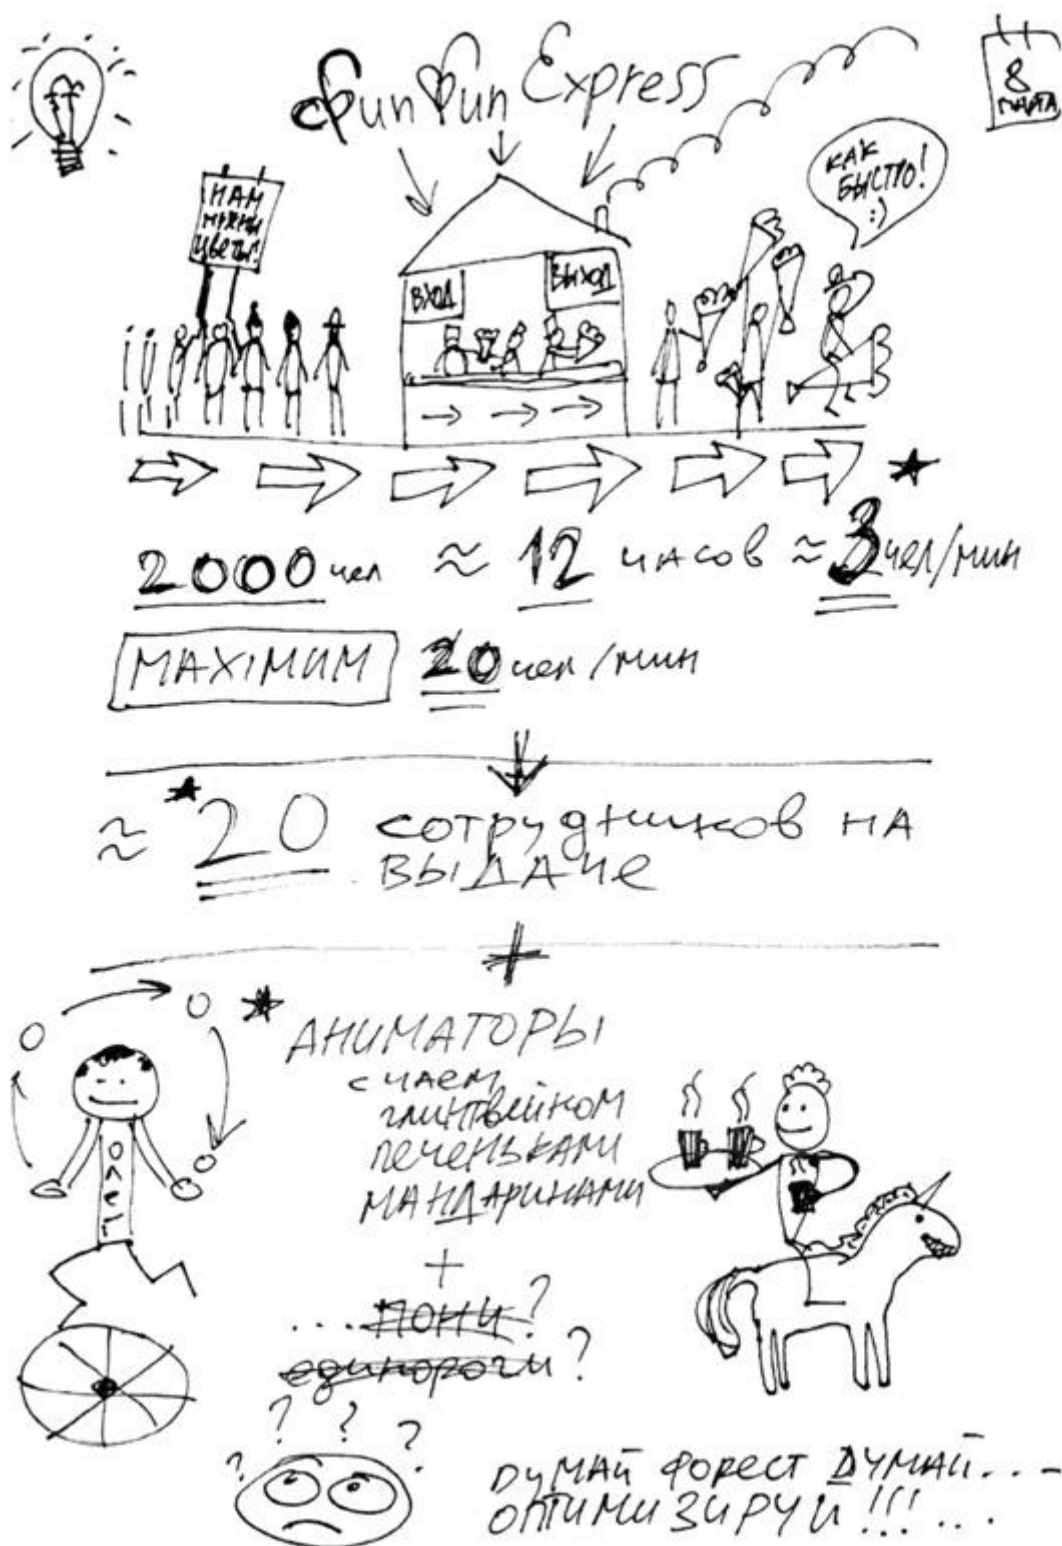 ФлипФлип Express
8
МАРТА
НАМ
НУЖНЫ
ЦВЕТЫ!
КАК
БЫСТРО!
:)
ВХОД
ВЫХОД
2000 чел ≈ 12 часов ≈ 3 чел/мин
MAXIMUM 20 чел/мин
≈ 20 сотрудников на
выдаче
+
АНИМАТОРЫ
с чаем
глинтвейном
печеньками
МАНДАРИНАМИ
ОЛЕГ
+
... пони?
единороги?
? ? ? ?
ДУМАЙ ФОРЕСТ ДУМАЙ...
ОПТИМИЗИРУЙ!!!...